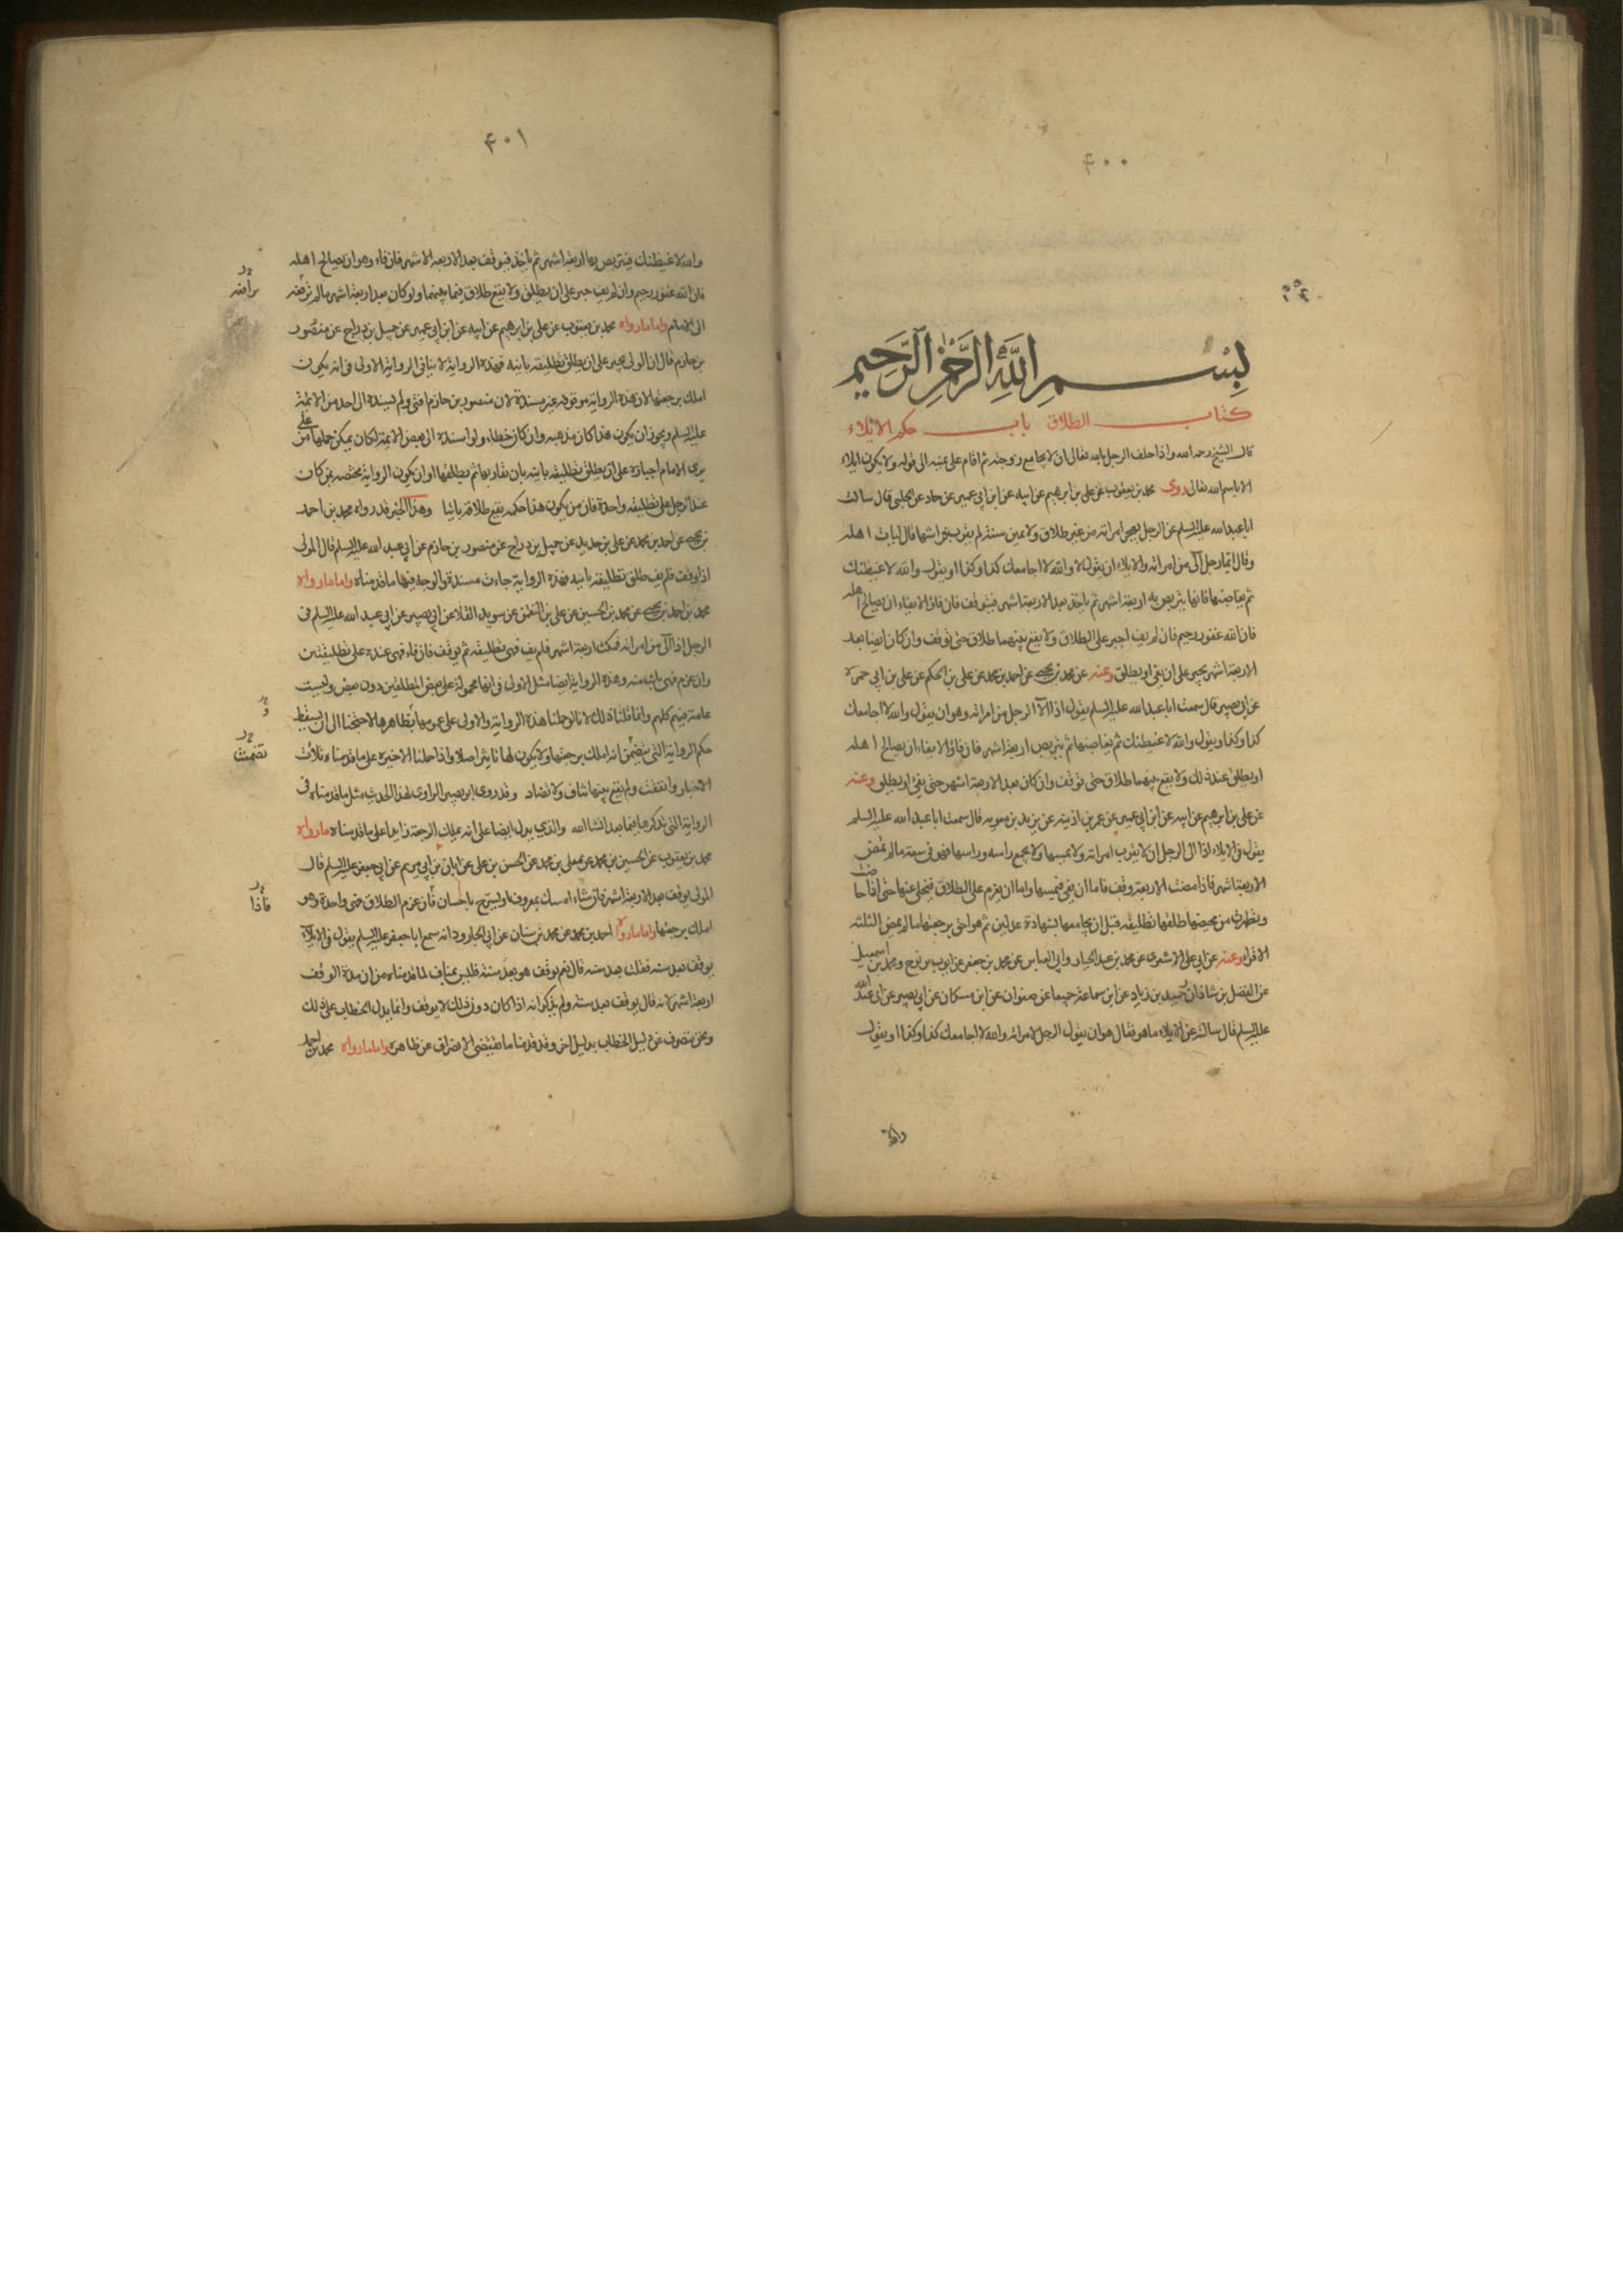 ۴۰۰
بِسْمِ اللَّهِ الرَّحْمٰنِ الرَّحِيمِ
كتاب الطلاق باب حكم الايلاء
قال الشيخ رحمه الله واذا حلف الرجل بالله تعالى ان لا يجامع زوجته ثم اقام على يمينه الى قوله ولا يكون ايلاء
الا باسم الله تعالى روى محمد بن يعقوب عن علي بن ابرهيم عن ابيه عن ابن ابي عمير عن حماد عن الحلبي قال سالت
ابا عبد الله عليه السلم عن الرجل يهجر امراته من غير طلاق ولا يمين سنة لم يقرب فراشها قال ليات اهله
وقال ايما رجل آلى من امراته والايلاء ان يقول لا والله لا اجامعك كذا وكذا او يقول والله لاغيظنك
ثم يغاضبها فانها يتربص به اربعة اشهر ثم يؤخذ بعد الاربعة اشهر فيوقف فان فاؤ الايفاء ان يصالح اهله
فان الله غفور رحيم فان لم يف اجبر على الطلاق ولا يقع بينهما طلاق حتى توقف وان كان ايضا بعد
الاربعة اشهر يجبر على ان يفي او يطلق وعنه عن محمد بن يحيى عن احمد بن محمد عن علي بن الحكم عن علي بن ابي حمزة
عن ابي بصير قال سمعت ابا عبد الله عليه السلم يقول اذا آلا الرجل من امراته وهو ان يقول والله لا اجامعك
كذا وكذا ويقول والله لاغيظنك ثم يغاضبها ثم يتربص اربعة اشهر فان فاؤ الايفاء ان يصالح اهله
او يطلق عند ذلك ولا يقع بينهما طلاق حتى توقف وان كان بعد الاربعة اشهر حتى يفئ او يطلق وعنه
عن علي بن ابرهيم عن ابيه عن ابن ابي عمير عن عمر بن اذينه عن بريد بن معويه قال سمعت ابا عبد الله عليه السلم
يقول في الايلاء اذا الى الرجل ان لا يقرب امراته ولا يمسها ولا يجمع راسه وراسها فهو في سعة مالم تمض
الاربعة اشهر فاذا مضت الاربعة وقف فاما ان يفئ فيمسها واما ان يعزم على الطلاق فيخلى عنها حتى اذا حاضت
وتطهرت من محيضها طلقها تطليقه قبل ان يجامعها بشهادة عدلين ثم هو احق برجعتها مالم يمض الثلثه
الاقراء وعنه عن ابي علي الاشعري عن محمد بن عبد الجبار وابي العباس عن محمد بن جعفر عن ايوب بن نوح ومحمد بن اسمعيل
عن الفضل بن شاذان وحميد بن زياد عن ابن سماعة جميعا عن صفوان عن ابن مسكان عن ابي بصير عن ابي عبد الله
عليه السلم قال سالته عن الايلاء ماهو فقال هو ان يقول الرجل لامراته والله لا اجامعك كذا وكذا او يقول
والله
۴۰۱
والله لاغيظنك فيتربص بها اربعة اشهر ثم ياخذ فيوقف بعد الاربعه الاشهر فان فاء وهو ان يصالح اهله
فان الله غفور رحيم وان لم يف جبر على ان يطلق ولا يقع طلاق فيما بينهما ولو كان بعد اربعة اشهر مالم ترفعه
الى الامام واما مارواه محمد بن يعقوب عن علي بن ابرهيم عن ابيه عن ابن ابي عمير عن جميل بن دراج عن منصور
بن حازم قال ان المولى يجبر على ان يطلق تطليقه باينه فهذه الرواية لا ينافي الرواية الاولى في انه يكون
املك برجعتها لان هذه الرواية موقوفه غير مسندة لان منصور بن حازم افتى ولم يسنده الى احد من الائمة
عليهم السلم ويجوز ان يكون هذا كان مذهبه وان كان خطاء ولو اسنده الى بعض الائمة لكان يمكن حملها على من
يرى الامام اجباره على ان يطلق تطليقه باينه بان يقاربها ثم يطلقها او ان يكون الرواية مختصه بمن كانت
عند الرجل على تطليقه واحدة فان من يكون هذا حكمه يقع طلاقه باينا وهذا الخبر قد رواه محمد بن احمد
بن يحيى عن احمد بن محمد عن علي بن حديد عن جميل بن دراج عن منصور بن حازم عن ابي عبد الله عليه السلم قال المولى
اذا وقف فلم يف طلق تطليقه باينه فهذه الرواية جاءت مسندة والوجه فيها ما قدمناه واما مارواه
محمد بن احمد بن يحيى عن محمد بن الحسين عن علي بن النعمن عن سويد القلا عن ابي بصير عن ابي عبد الله عليه السلم في
الرجل اذا آلى من امراته فمكث اربعة اشهر فلم يف فهى تطليقه ثم يوقف فان فاء فهى عنده على تطليقتين
وان عزم فهى باينه منه وهذه الرواية ايضا مثل الاولى في انها محمولة على بعض المطلقين دون بعض وليست
عامة فيهم كلهم وانما قلنا ذلك لانا لو حملنا هذه الرواية والاولى على عمومها بظاهرها لاحتجنا الى ان يسقط
حكم الرواية التي يتضمن انه املك برجعتها ولا يكون لها تاثير اصلا واذا حملنا الاخيره على ما قدمناه تلائمت
الاخبار واتفقت ولم يقع بينها تناف ولا تضاد وقد روى ابو بصير الراوي لهذا الحديث مثل ما قدمناه في
الرواية التي نذكرها فيما بعد انشا الله والذي يدل ايضا على انه يملك الرجعة زايدا على ما قدمناه مارواه
محمد بن يعقوب عن الحسين بن محمد عن معلى بن محمد عن الحسن بن علي عن ابان عن ابي مريم عن ابي جعفر عليه السلم قال
المولى يوقف بعد الاربعة اشهر فان شاء امسك بمعروف او تسريح باحسان فان عزم الطلاق فهى واحدة وهو
املك برجعتها واما مارواه احمد بن محمد عن محمد بن سنان عن ابي الجارود انه سمع ابا جعفر عليه السلم يقول في الايلاء
يوقف بعد سنه فقلت بعد سنه قال نعم يوقف هو بعد سنة فليس بمناف لما قدمناه من ان مدة الوقف
اربعة اشهر لانه قال يوقف بعد سنة ولم يذكر انه اذا كان دون ذلك لا يوقف وانما يدل الخطاب على ذلك
ونحن ننصرف عن دليل الخطاب بدليل اخر وقد قدمنا ما يقتضي الانصراف عن ظاهره واما مارواه محمد بن احمد
ترافعه
و
تضمنت
فاذا